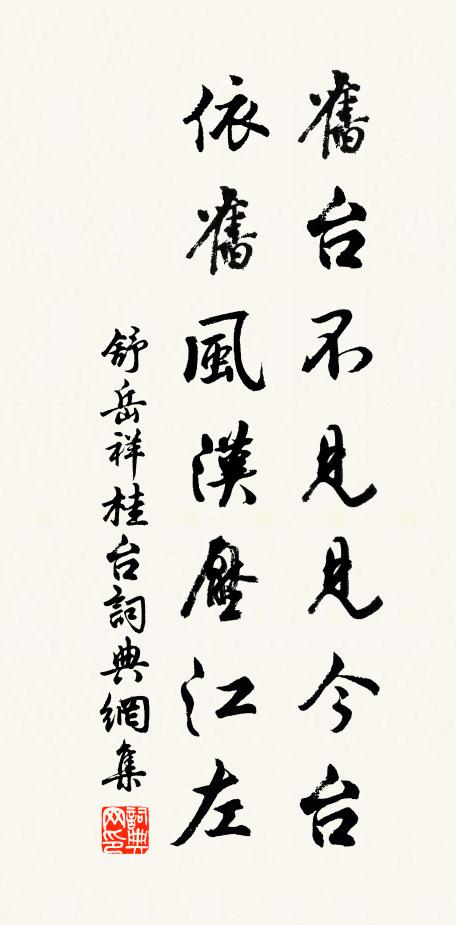 舊台不見見今台
依舊風漢壓江左
舒岳祥桂台詞典網集
詞典网印